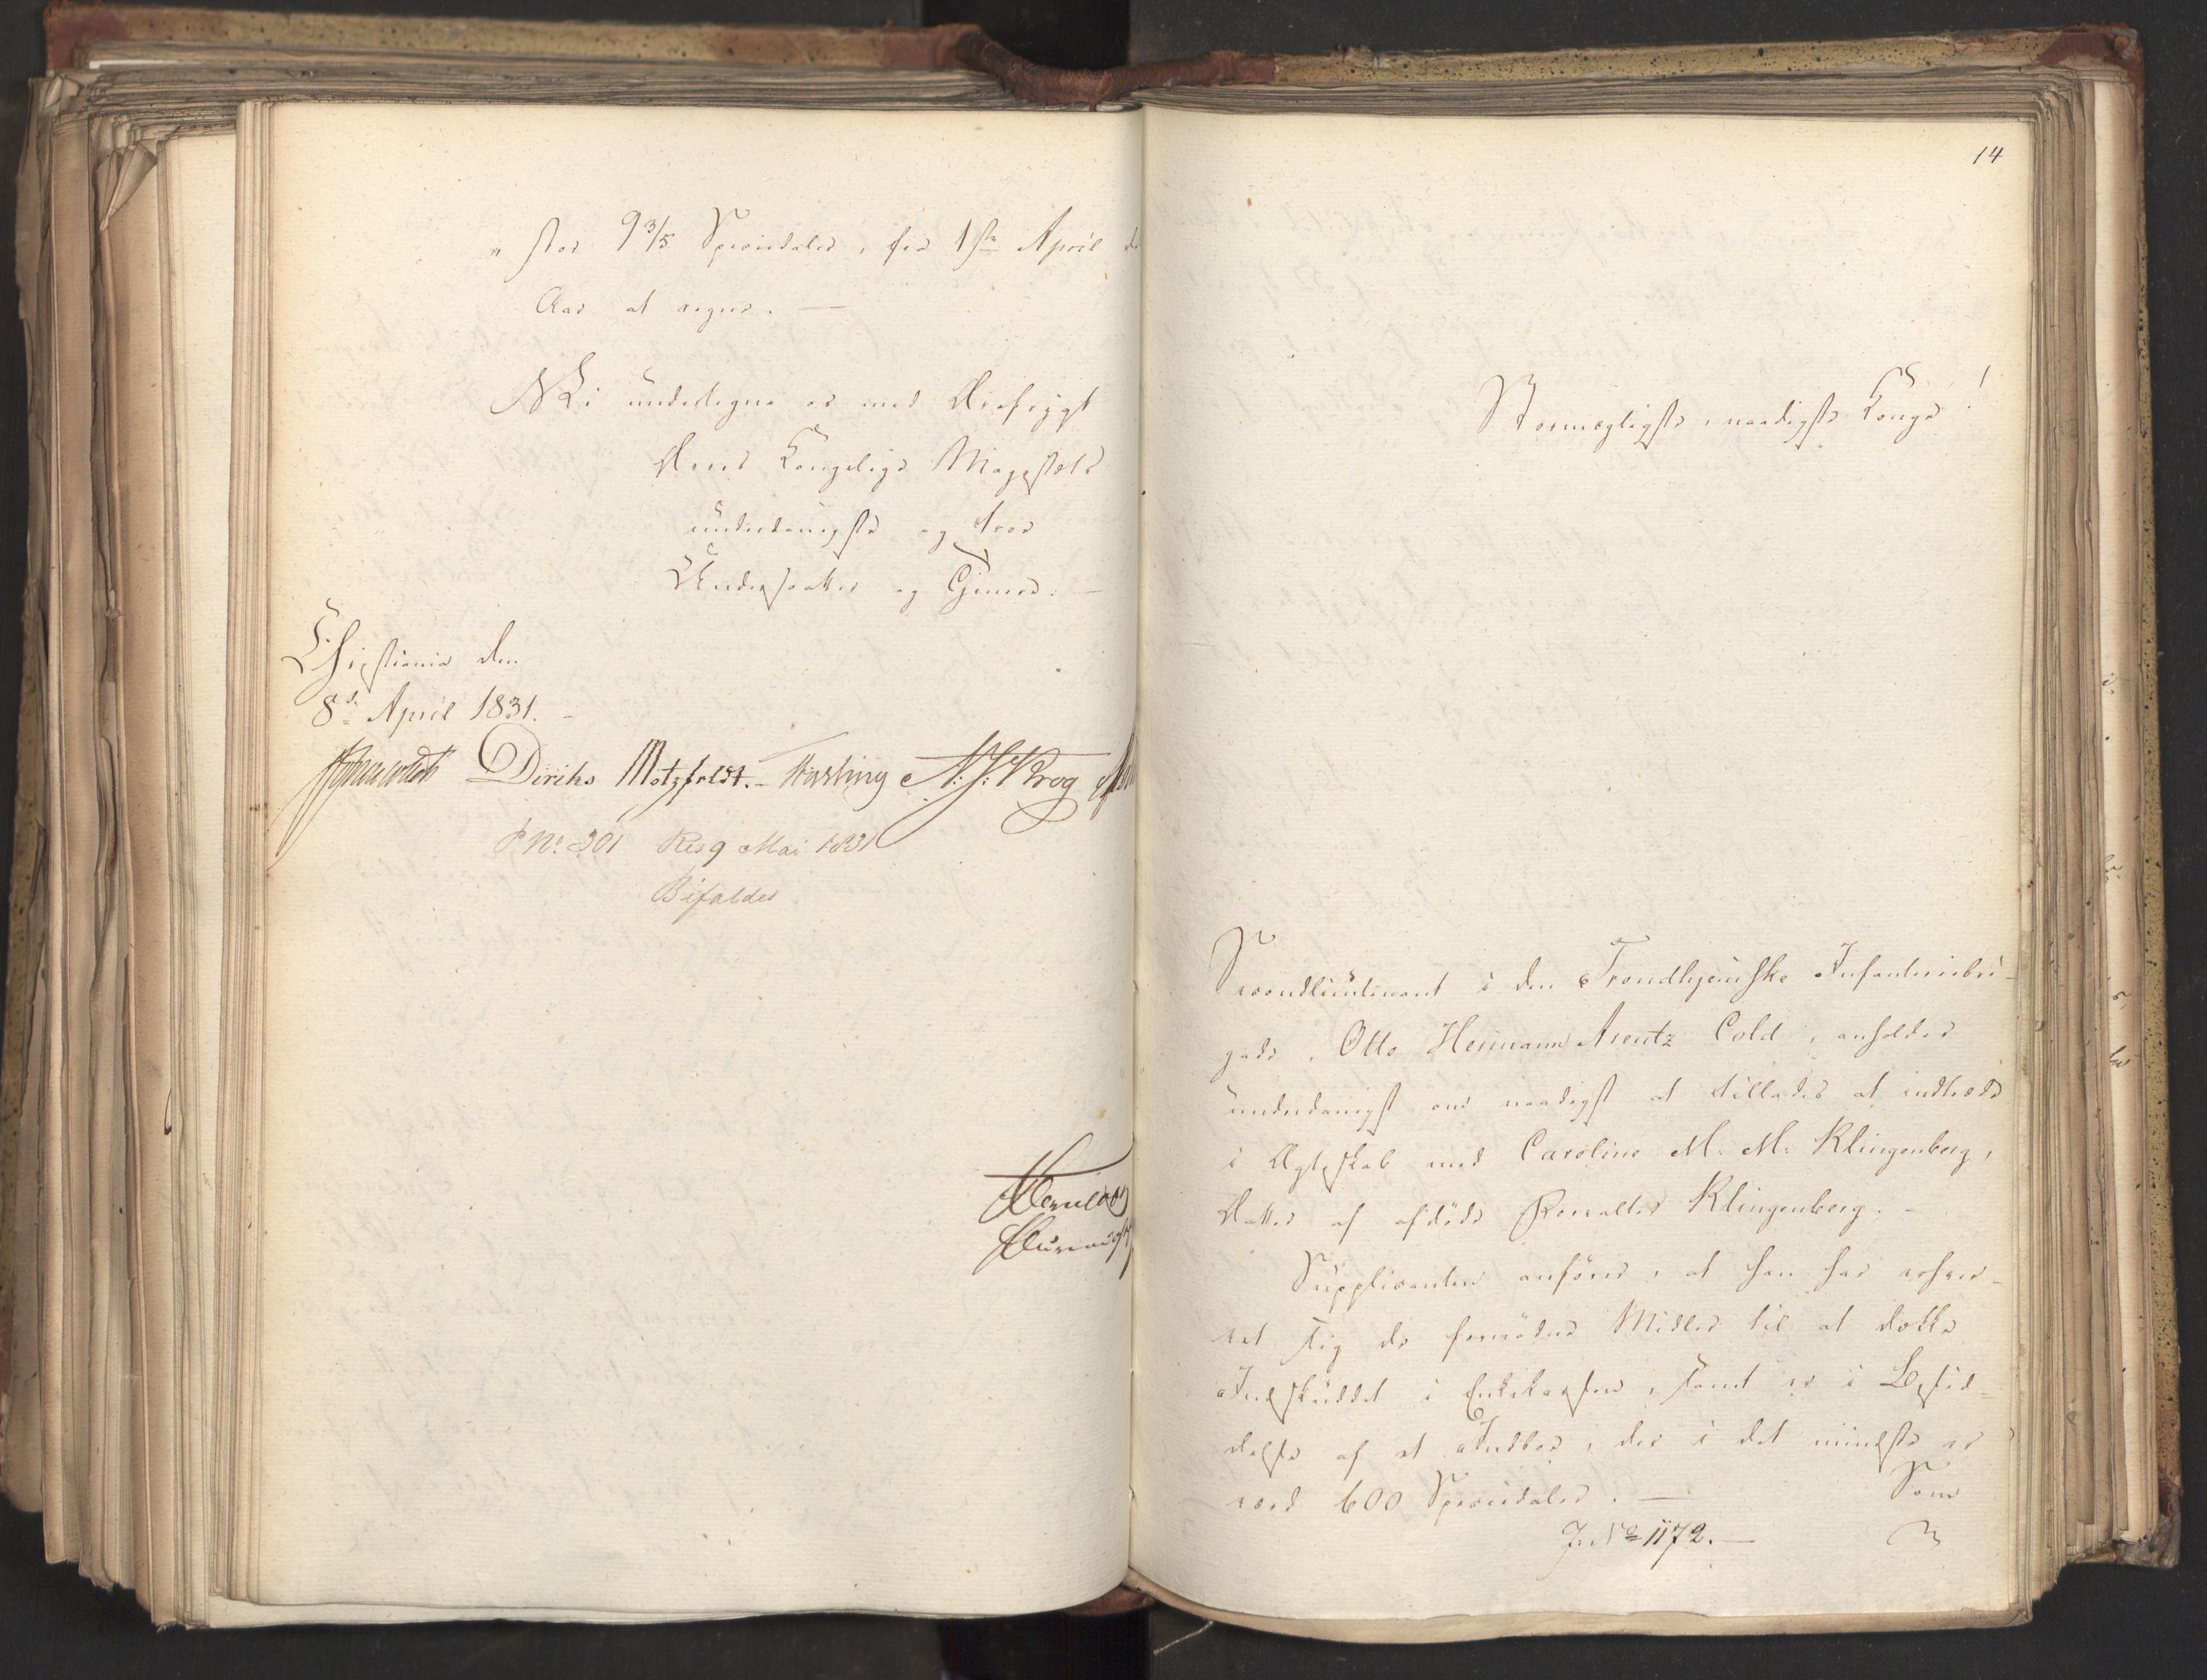 "stor 9 3/5 Speciedaler, fra 1ste April d.
Aar at regne. —
Vi undertegne os med Ærefrygt
Deres Kongelige Majestæts
underdanigste og troe
Undersaatter og Tjenere. —
Christiania den
8de April 1831. -
Diriks Motzfeldt. - Fasting N: J: Krog
P No 301 Res 9 Mai 1831
Bifaldes
14
Stormægtigste, naadigste Konge!
Secondlieutenant i den Trondhjemske Infanteribri-
gade, Otto Hermann Arentz Cold, anholder
underdanigst om naadigst at tillades at indtræde
i Ægteskab med Caroline M. M. Klingenberg,
Datter af afdøde Forvalter Klingenberg. -
Supplicanten anfører, at han har erhver-
vet sig de fornødne Midler til at dække
Indskuddet i Enkekassen, samt er i Besid-
delse af et Indboe, der i det mindste er
værd 600 Speciedaler. —
Som
J. No 1172. —